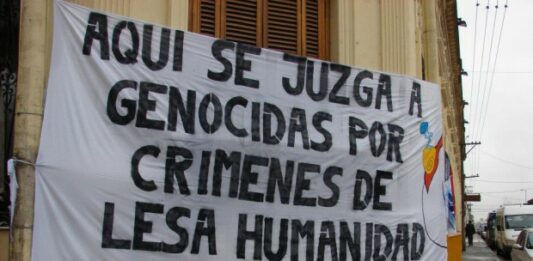 AQUI SE JUZGA A
GENOCIDAS POR
CRIMENES DE
LESA HUMANIDAD